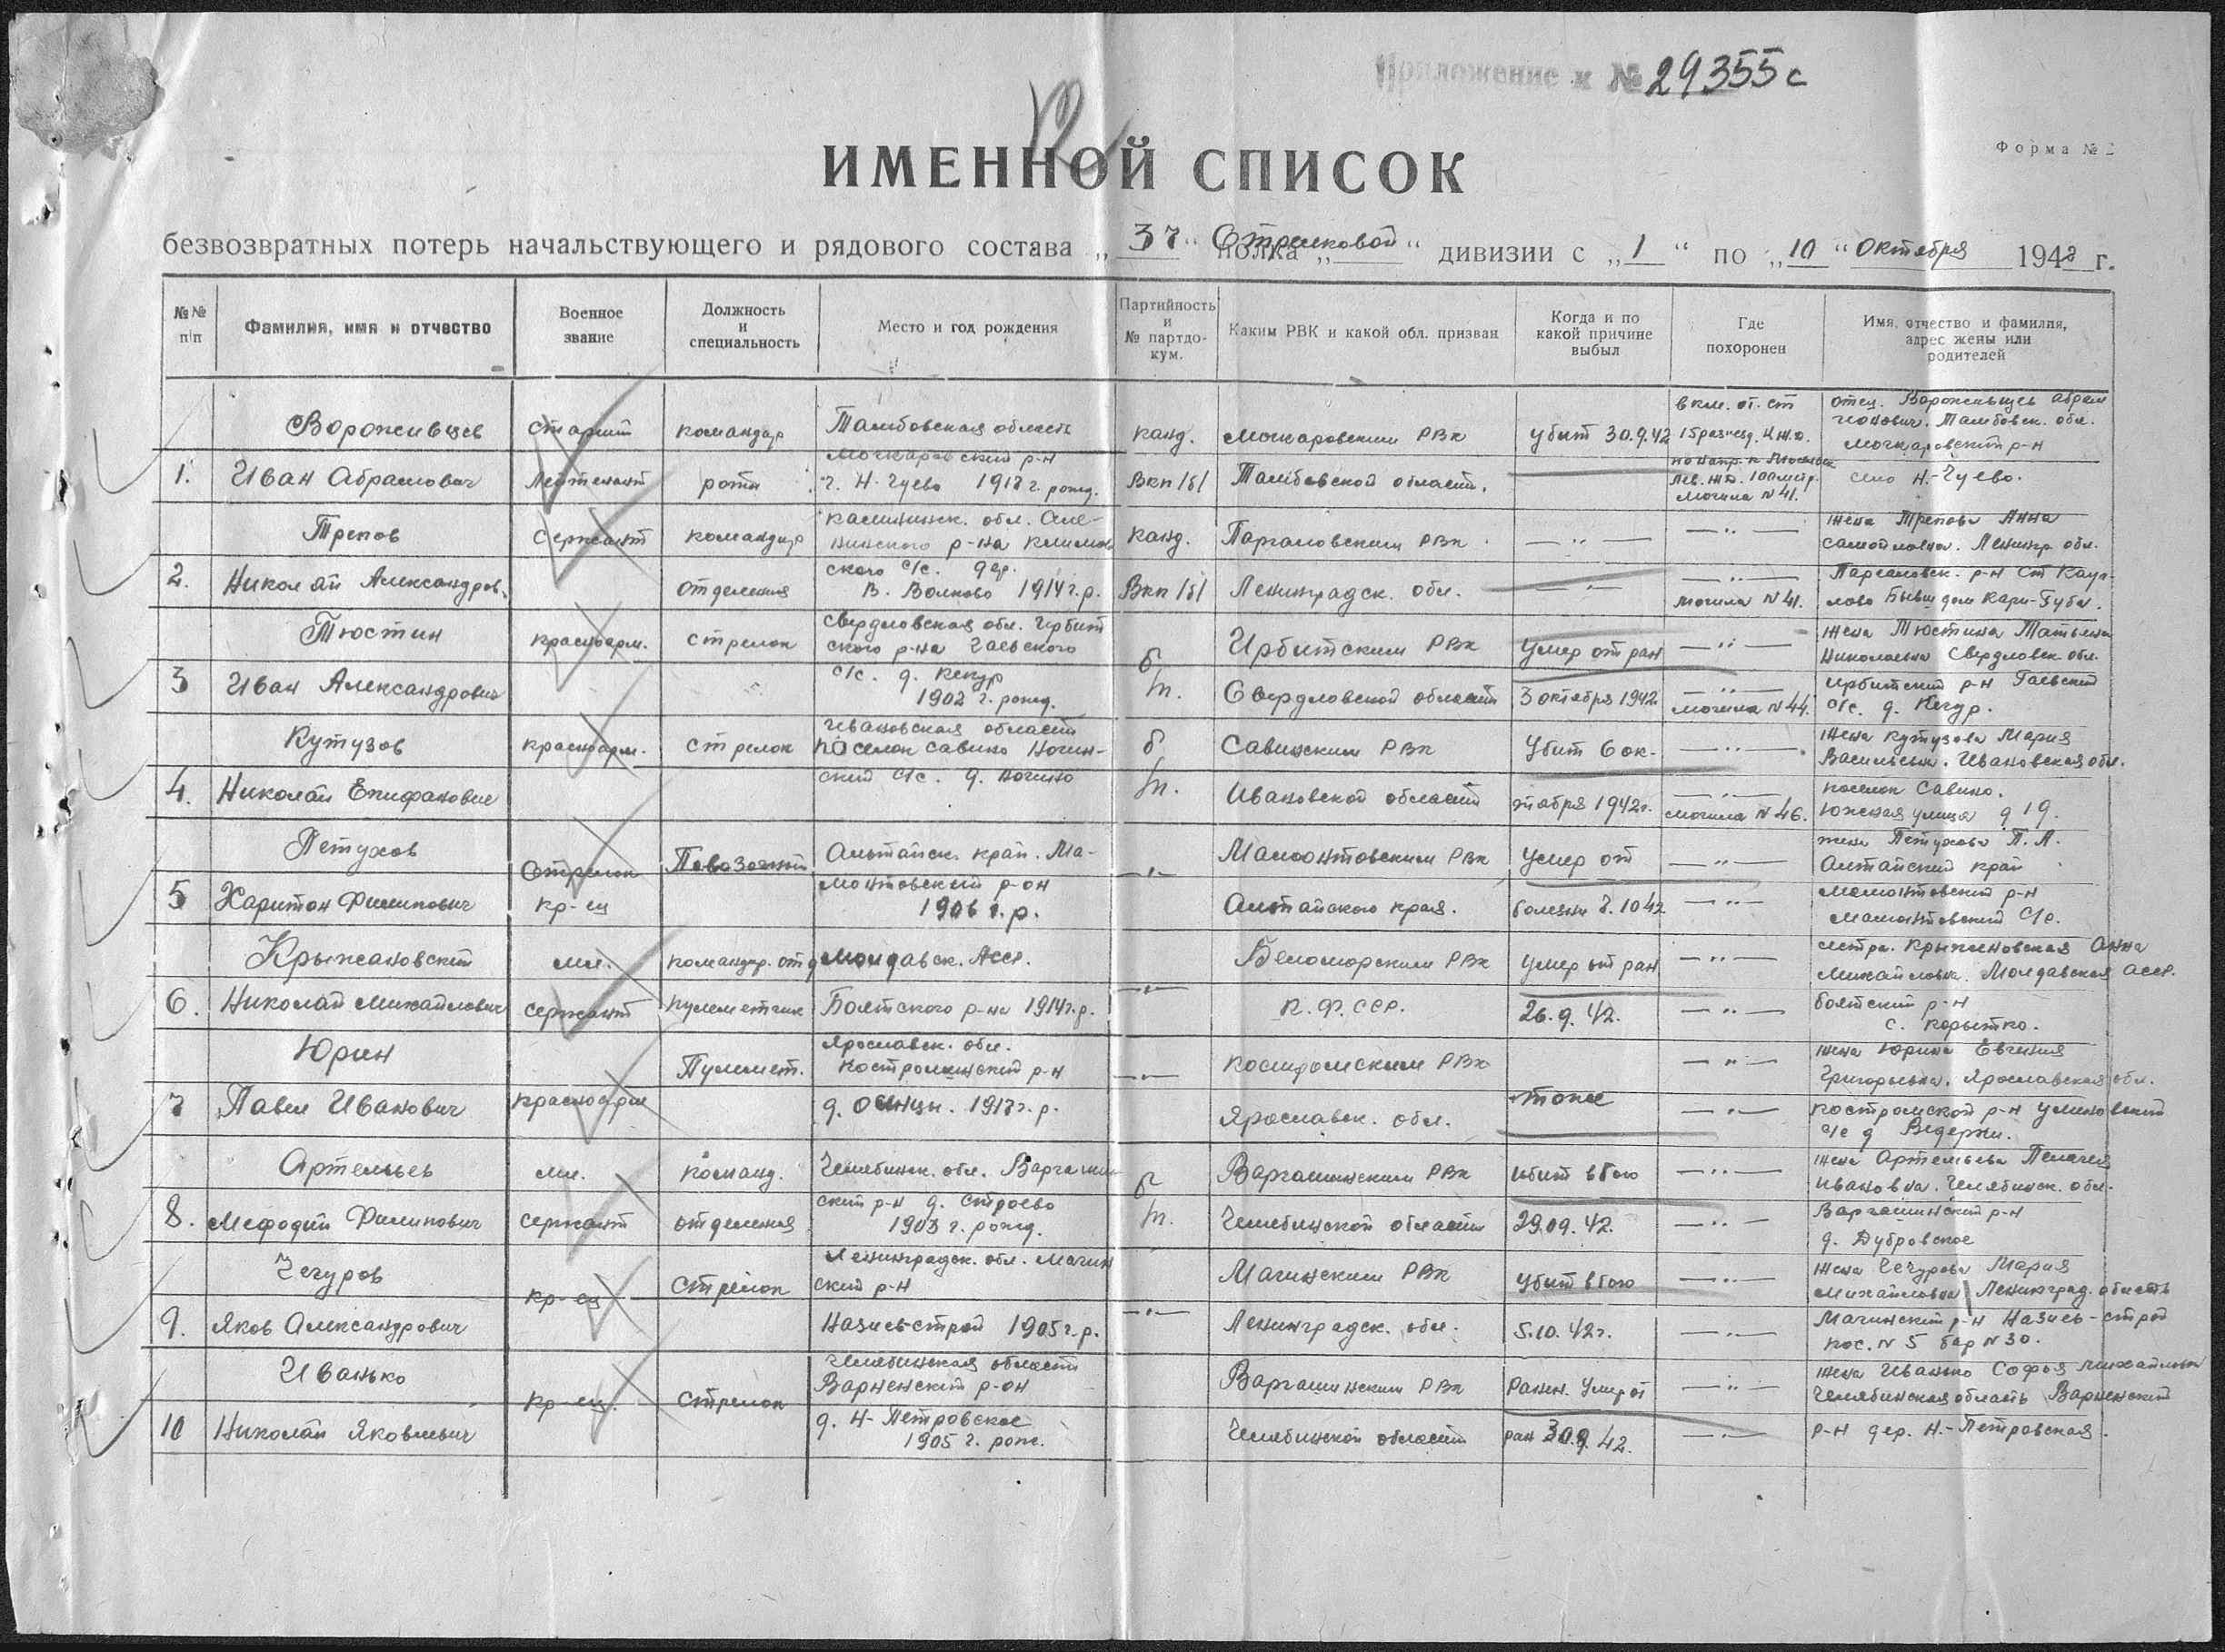 Приложение к № 29355с
ИМЕННОЙ СПИСОК
Форма № 2
безвозвратных потерь начальствующего и рядового состава „37“ полка „Стрелковой“ дивизии с „1“ по „10“ октября 1942 г.
№№ п/п
Фамилия, имя и отчество
Военное звание
Должность и специальность
Место и год рождения
Партийность и № партдокум.
Каким РВК и какой обл. призван
Когда и по какой причине выбыл
Где похоронен
Имя, отчество и фамилия, адрес жены или родителей
1. Ворожейцев Иван Абрамович
Старший Лейтенант
командир роты
Тамбовская область
р-н
Н. Чуево 1917 г. рожд.
канд. Вкп/б/
РВК Тамбовской области.
убит 30.9.42
могила N 41.
отец. Тамбовск. обл.
р-н
село Н.-Чуево.
2. Трепов Николай Александров.
Сержант
командир отделения
калининск. обл.
с/с. дер.
В. Волково 1914 г.р.
канд. Вкп/б/
Парголовским РВК Ленинградск. обл.
— " —
— " —
могила N 41.
жена Трепова Анна
Самойловна. Ленингр обл.
Парголовск. р-н ст
3 Тюстин Иван Александрович
красноарм.
стрелок
Свердловская обл. Ирбитского р-на Гаевского
с/с. д. Кекур
1902 г. рожд.
б/п.
Ирбитским РВК Свердловской области
Умер от ран 3 октября 1942
— " —
могила N 44.
жена Тюстина Татьяна
Николаевна Свердловск обл.
Ирбитский р-н Гаевский
с/с. д. Кекур.
4. Кутузов Николай Епифанович
красноарм.
стрелок
Ивановская область
поселок Савино
с/с. д.
б/п.
Савинским РВК Ивановской области
Убит 6 октября 1942 г.
— " —
могила N 46.
Жена Кутузова Мария
Васильевн. Ивановская обл.
поселок Савино.
Южская улица д 19.
5 Петухов Харитон Филипович
Стрелок кр-ец
Повозочный
Алтайск. край. Мамонтовский р-он
1906 г.р.
— " —
Мамонтовским РВК Алтайского края.
Умер от болезни 7.10 42
— " —
жена Петухова П. А.
Алтайский край
Мамонтовский р-н
Мамонтовский с/с.
6. Крыжановский Николай Михайлович
мл. сержант
командир. отд пулеметчик
Молдавск. Асср.
р-на 1914 г.р.
— " —
Беломорским РВК К.Ф.ССР.
Умер от ран 26.9.42.
— " —
сестра. Крыжановская Анна
Михайловна. Молдавская асср.
р-н
с. Корытко.
7 Юрин Павел Иванович
красноарм
Пулемет.
Ярославск. обл.
Костромской р-н
1917 г. р.
— " —
Костромским РВК Ярославск. обл.
тоже
— " —
жена Юрина Евгения
Григорьевна. Ярославская обл.
Костромской р-н
с/с д
8. Артемьев Мефодий Филипович
мл. сержант
команд. отделения
Челябинск. обл. Варгашинский р-н д. Строево
1903 г. рожд.
б/п.
Варгашинским РВК Челябинской области
убит в бою 29.09.42.
— " —
жена Артемьева Пелагея
Ивановна. Челябинск. обл.
Варгашинский р-н
д. Дубровское
9. Чечуров Яков Александрович
кр-ец
Стрелок
Ленинградск. обл. Мгинский р-н
Назиестрой 1905 г.р.
— " —
Мгинским РВК Ленинградск. обл.
Убит в бою 5.10.42 г.
— " —
жена Чечурова Мария
Михайловна Ленинград. область
Мгинский р-н Назиев-строй
пос. N 5 бар N 30.
10 Иванько Николай Яковлевич
кр-ец.
Стрелок
Челябинская область
Варненский р-он
д. Н-Петровское
1905 г. рож.
Варгашинским РВК Челябинской области
Умер от ран 30.9.42.
— " —
жена Иванько Софья Михайловн
Челябинская область Варненский
р-н дер. Н.-Петровская.